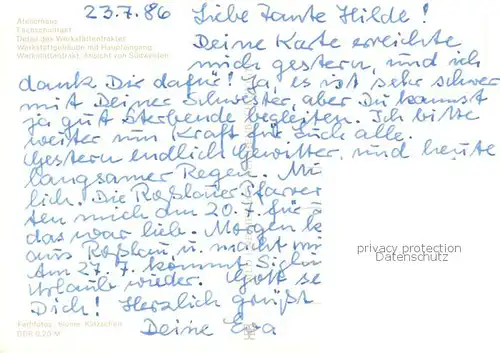 23.7.86 Liebe Tante Hilde!
Atelierhaus
Fachschulinst
Detail des Werkstättentraktes
Werkstattgebäude mit Haupteingang
Werkstättentrakt, Ansicht von Südwesten
Deine Karte erreichte
mich gestern, und ich
dank Dir dafür! Ja, es ist sehr schwer
mit Deiner Schwester, aber Du kannst
ja gut Sterbende begleiten. Ich bitte
weiter um Kraft für Euch alle.
Gestern endlich Gewitter, und heute
langsamer Regen. Mü
lich. Die Roßlauer Pfarrer
ten mich am 20.7. für
das war lieb. Morgen k
aus Roßlau, u. macht
Am 27.7. kommt
Urlaub wieder. Gott se
Dich! Herzlich grüßt
Deine Eva
privacy protection
Datenschutz
Farbfotos:
DDR 0,20 M